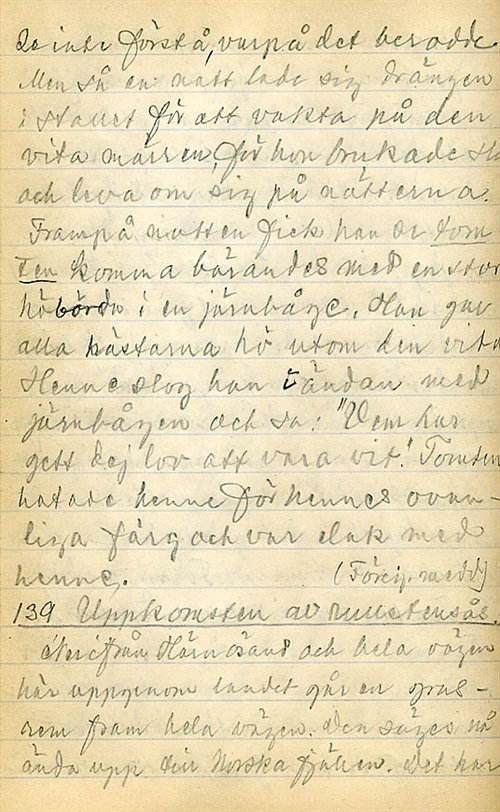 de inte förstå, varpå det berodde
Men så en natt lade sig drängen
i stallet för att vakta på den
vita märren, för hon brukade slå
och leva om sig på nätterna.
Frampå natten fick han se tom
ten komma bärandes med en stor
höbörda i en järnbåge. Han gav
alla hästarna hö utom den vita
Henne slog han i ändan med
järnbågen och sa: "Vem har
gett dej lov att vara vit." Tomten
hatade henne för hennes ovan-
liga färg och var elak med
henne. (Föreg. medd)
139 Uppkomsten av rullstensås.
från Härnösand och hela vägen
här uppgenom landet går en grus-
rem fram hela vägen. Den säges nå
ända upp till Norska fjällen. Det har